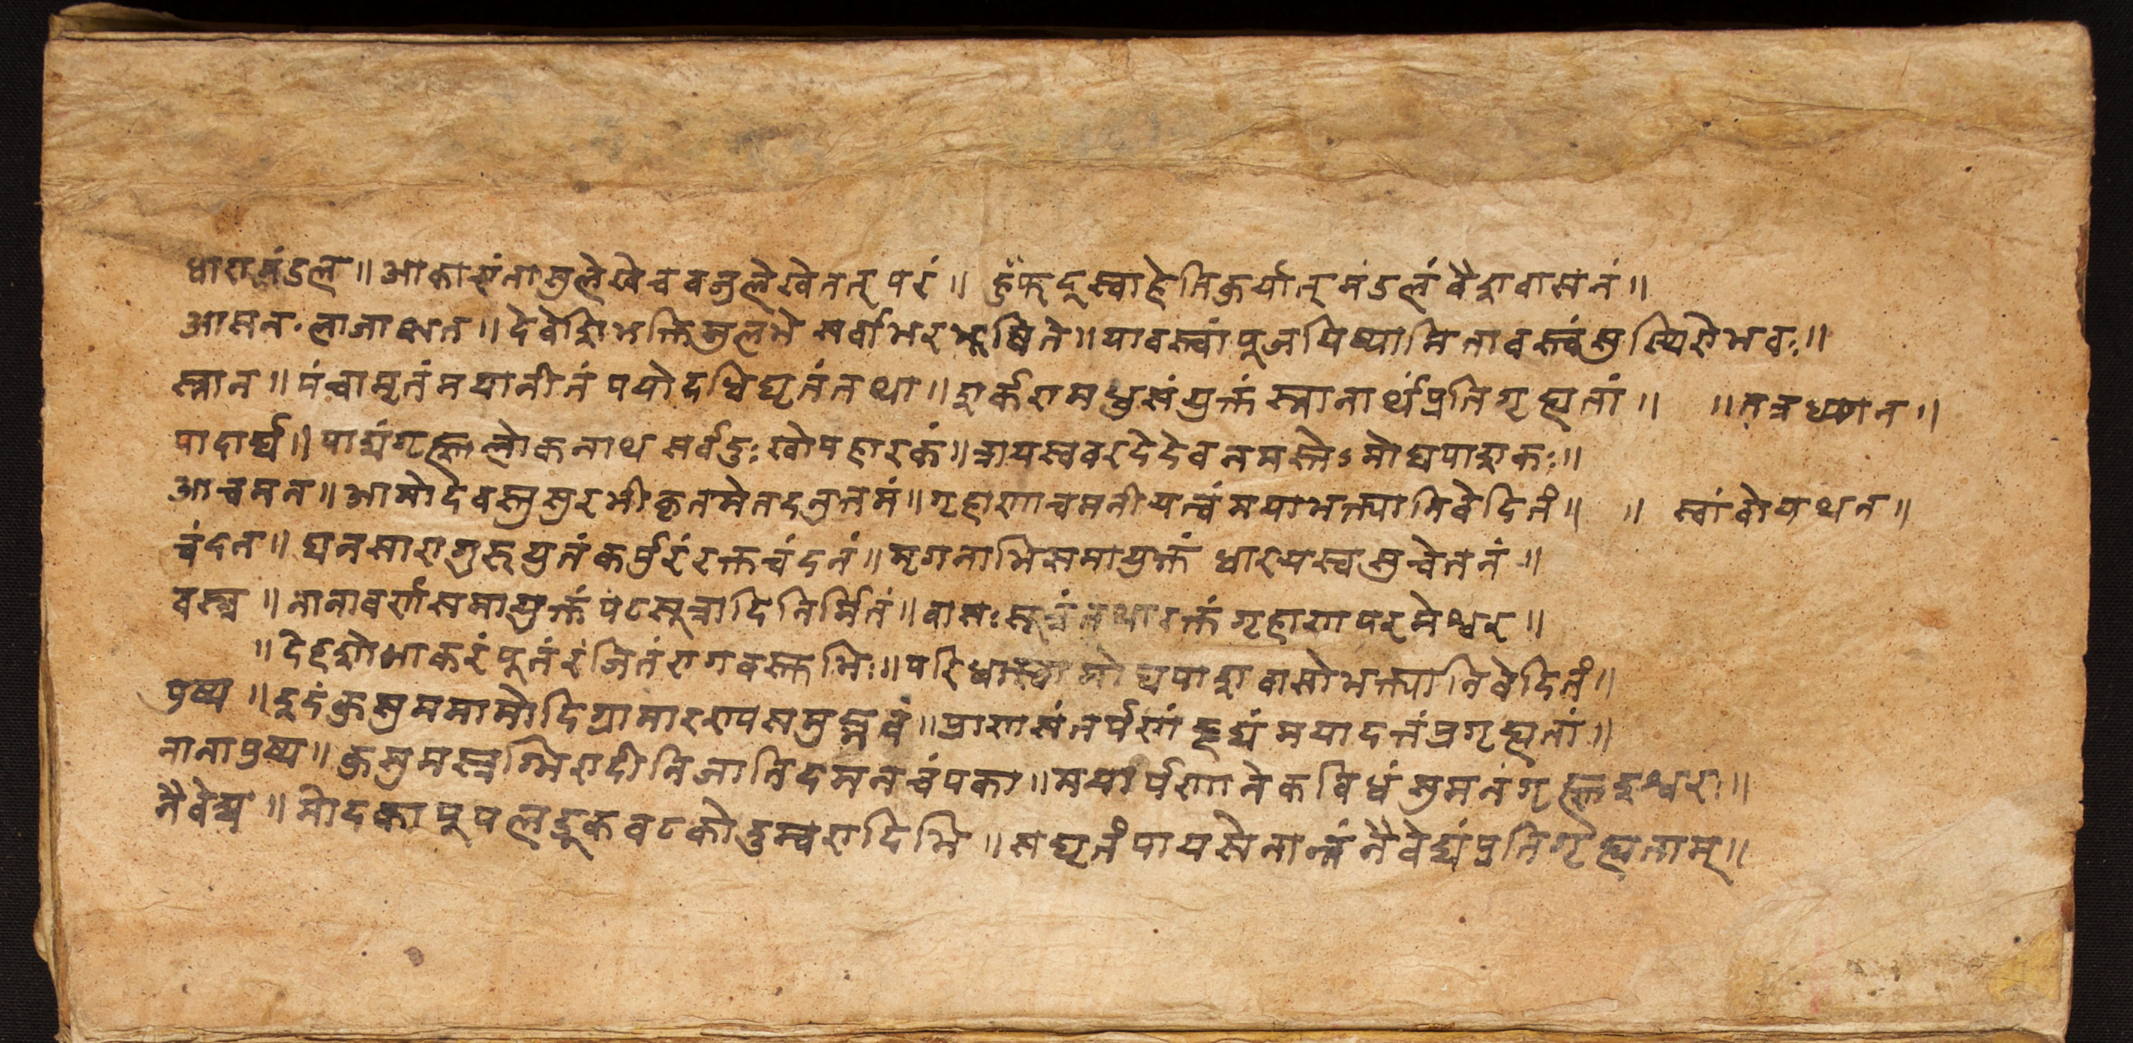 धारामंडल॥ आकाशंनामुलेखेच वजुलेखेततत्परं॥ हुँफट्स्वाहेतिकुर्यात् मंडलं वैशवासनं॥
आसन. लाजाक्षत॥ देवेशिभक्तिसुलभे सर्वाभरभूषिते॥ यावत्त्वां पुजयिष्यामि तावत्त्वं सुस्थिरोभवः॥
स्नान॥ पंचामृतंमयानीतं पयोदधिघृतंतथा॥ शर्करामधुसंयुक्तं स्नानार्थंप्रतिगृह्यतां॥ ॥
पादार्घ॥ पाद्यंगृह्ललोकनाथ सर्वदुःखोपहारकं॥ त्रायस्ववरदेदेव नमस्तेऽमोघपाशकः॥
आचमन॥ आमोदेवस्तुसुरभीकृतमेतदनुत्तमं॥ गृहाणाचमनीयत्वं मयाभक्त्यानिवेदितं॥ ॥
चंदन॥ घनसारागुरूयुतं कर्पुरं रक्तचंदनं॥ मृगनाभिसमायुक्तं धारयस्व सुचेतनं॥
वस्त्र॥ नानावर्णसमायुक्तं पटसूत्रादिनिर्मितं॥ वासः सूत्रं तथारक्तं गृहाण परमेश्वर॥
॥ देहशोभाकरं पुतं रंजितं रागवस्तुभिः॥ परिधत्स्वामोघपाश वासोभक्त्यानिवेदितं॥
पुष्प॥ इदंकुसुममामोदि समुद्भवं॥ प्राणसंतर्पणं हृद्यं मयादत्तंप्रगृह्यतां॥
नानापुष्प॥ कुसुम निजातिदमनचंपका॥ मयार्पणानेकविधं सुमनंगृह्लइश्वर॥
नैवेद्य॥ मोदकापुपलड्डुकवटकोडुम्वरादिभि॥ सघृतं पायसेनान्नं नैवेद्यंप्रतिगृह्यताम्॥